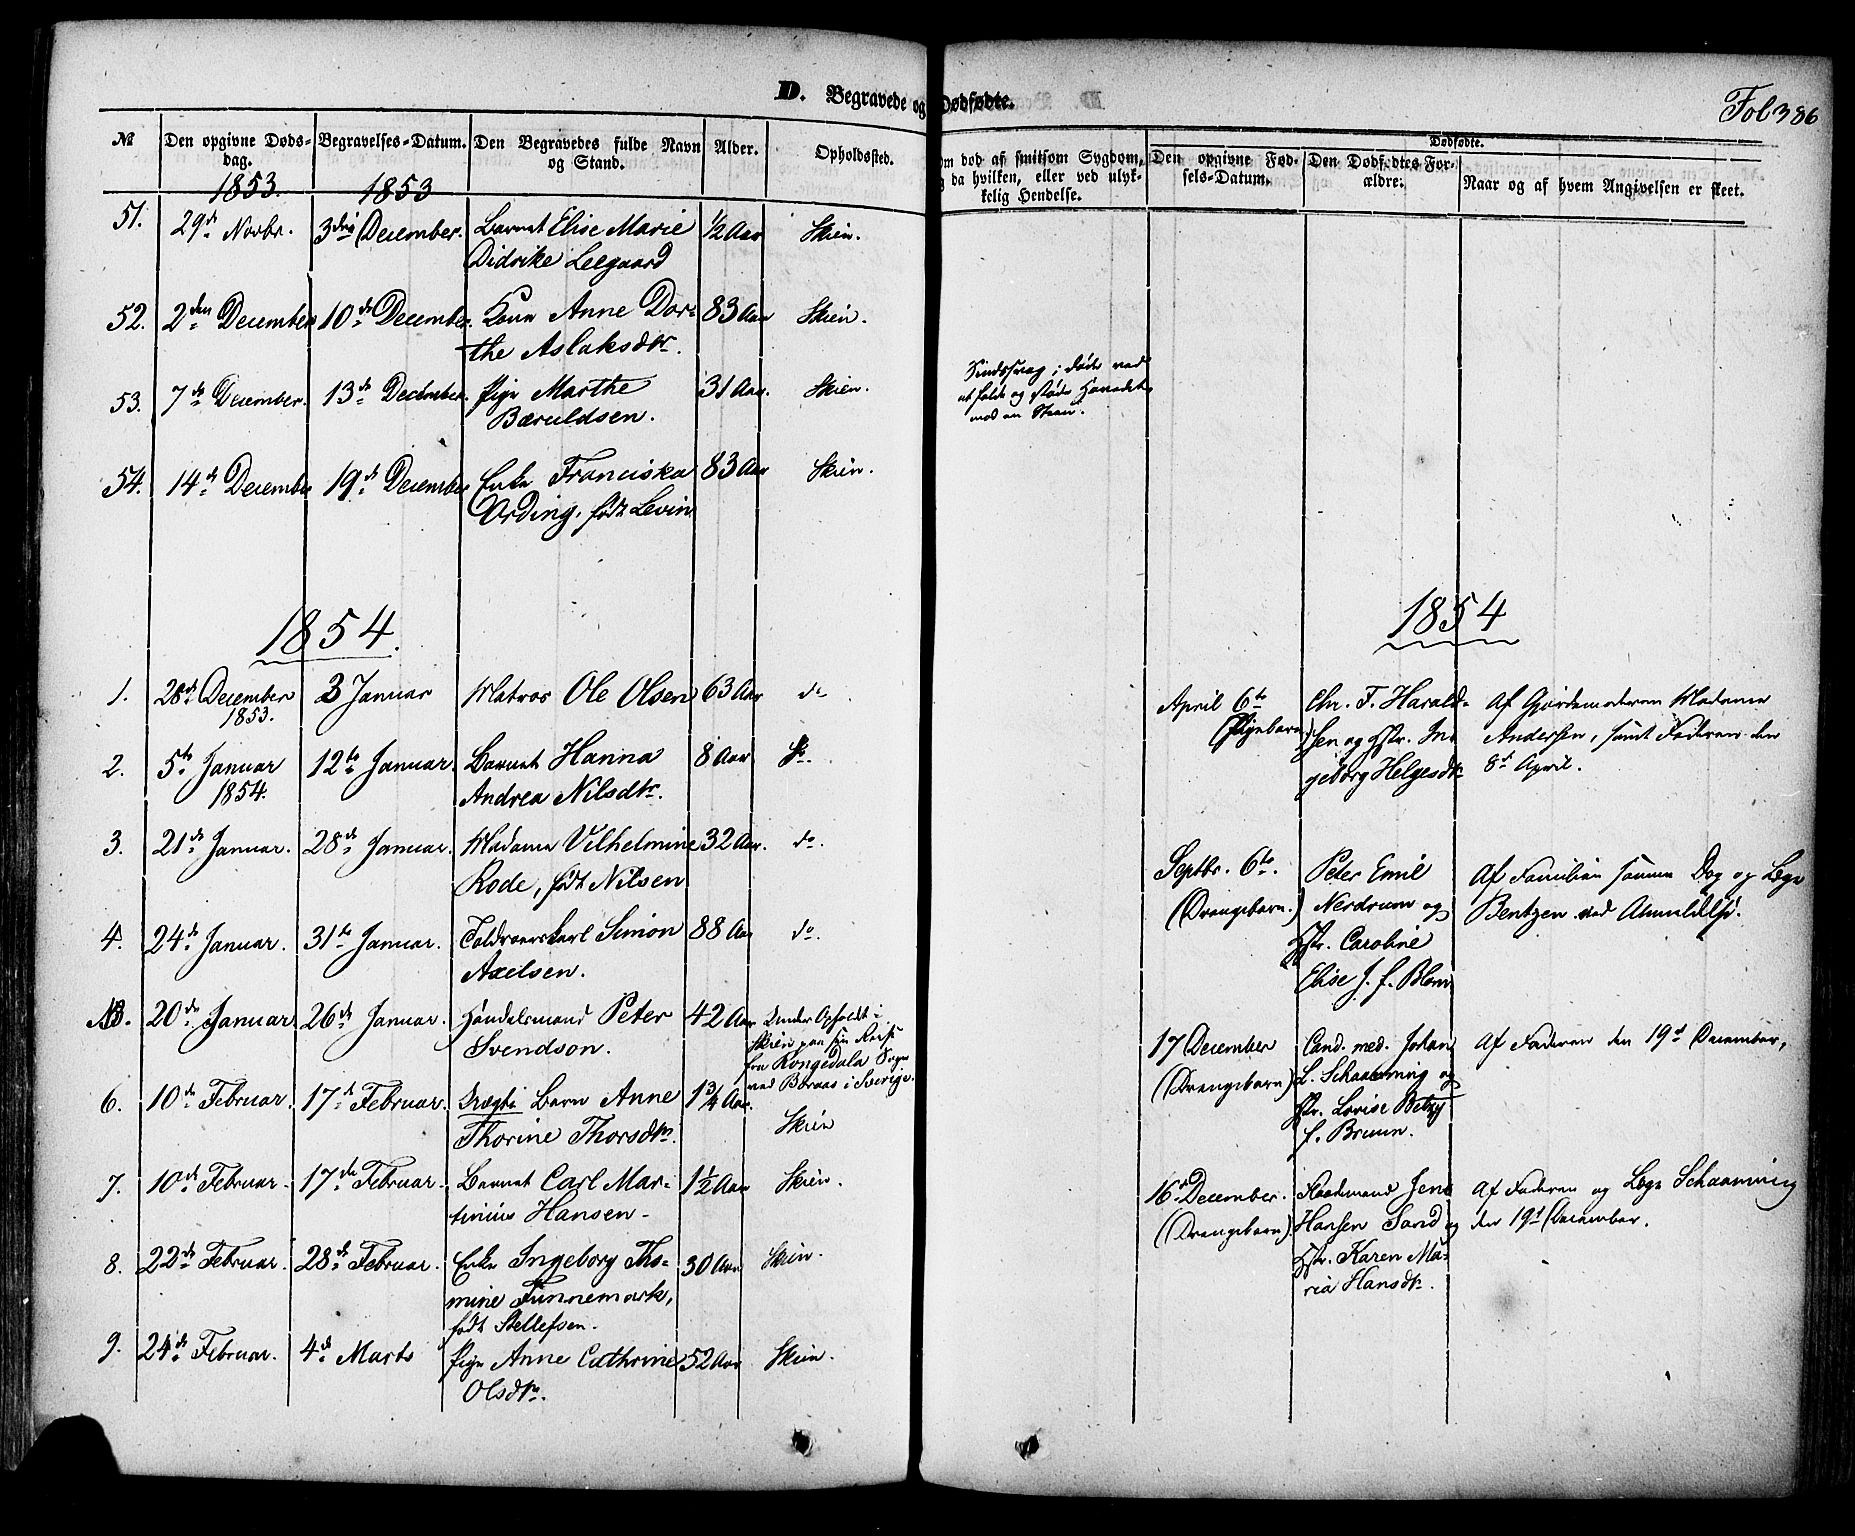 D. Begravede og Dødfødte.
Fol 386
№
Den opgivne Døds-
dag.
Begravelses-Datum.
Den Begravedes fulde Navn
og Stand.
Alder.
Opholdssted.
om død af smitsom Sygdom,
da hvilken, eller ved ulyk-
kelig Hendelse.
Dødfødte.
Den opgivne Fød-
sels-Datum.
Den Dødfødtes For-
ældre.
Naar og af hvem Angivelsen er skeet.
1853. 1853
51. 29de Novbr. 3die December. Barnet Elise Marie ½ Aar Skien.
Didrike Leegaard
52. 2den December 10de December. Kone Anne Dor- 83 Aar Skien.
the Aslaksdtr.
53. 7de December. 13de December. Pige Marthe 31 Aar. Skien.
Bæruldsen.
Sindssvag; døde ved
at falde og støde Hovedet
mod en Steen.
54. 14de December 19de December Enke Franciska 83 Aar Skien.
Ording, født Levin
1854.
1. 28de December 3 Januar Matros Ole Olsen 63 Aar do
1853.
2. 5te Januar 12te Januar. Barnet Hanna 8 Aar do.
1854. Andrea Nilsdtr.
3. 21de Januar. 28de Januar. Madame Vilhelmine 32 Aar. do.
Rode, født Nilsen
4. 24de Januar. 31te Januar. Toldroerskarl Simon 88 Aar do.
Axelsen.
20de Januar 26de Januar. Handelsmand Peter 42 Aar Under Opholdt i
Svendson. Skien paa sin Reise
fra Rongedala Sogn
ved Boraas i Sverige.
6. 10de Februar. 17de Februar. Uægte Barn Anne 1¾ Aar.
Thorine Thorsdtr. Skien
7. 10de Februar. 17de Februar. Barnet Carl Mar- 1½ Aar Skien.
tinius Hansen.
8. 22de Februar. 28de Februar. Enke Ingeborg Tho- 30 Aar Skien.
mine Funnemark,
født Stellefsen.
9. 24de Februar. 4de Marts Pige Anne Cathrine 52 Aar Skien.
Olsdtr.
1854
April 6te Chr. F. Harald- Af Gjordemoderen Madame
(Pigebarn) sen og Hstr. In Andersen, samt Faderen den
geborg Helgesdtr 8de April.
Septbr. 6te. Peter Emil Af Familien samme Dag og Læge
(Drengebarn.) Nerdrum og Bentzen ved Anmeldelse.
Hstr. Caroline
Elise J. f. Blom
17 December Cand. med. Johan Af Faderen den 19de December,
(Drengebarn) L. Schaanning og
Hstr. Lovise Betzy
f. Bruun.
16de December. Jens Af Faderen og Læge Schaanning
(Drengebarn). Hansen Sand og den 19de December.
Hstr. Karen Ma-
ria Hansdtr.